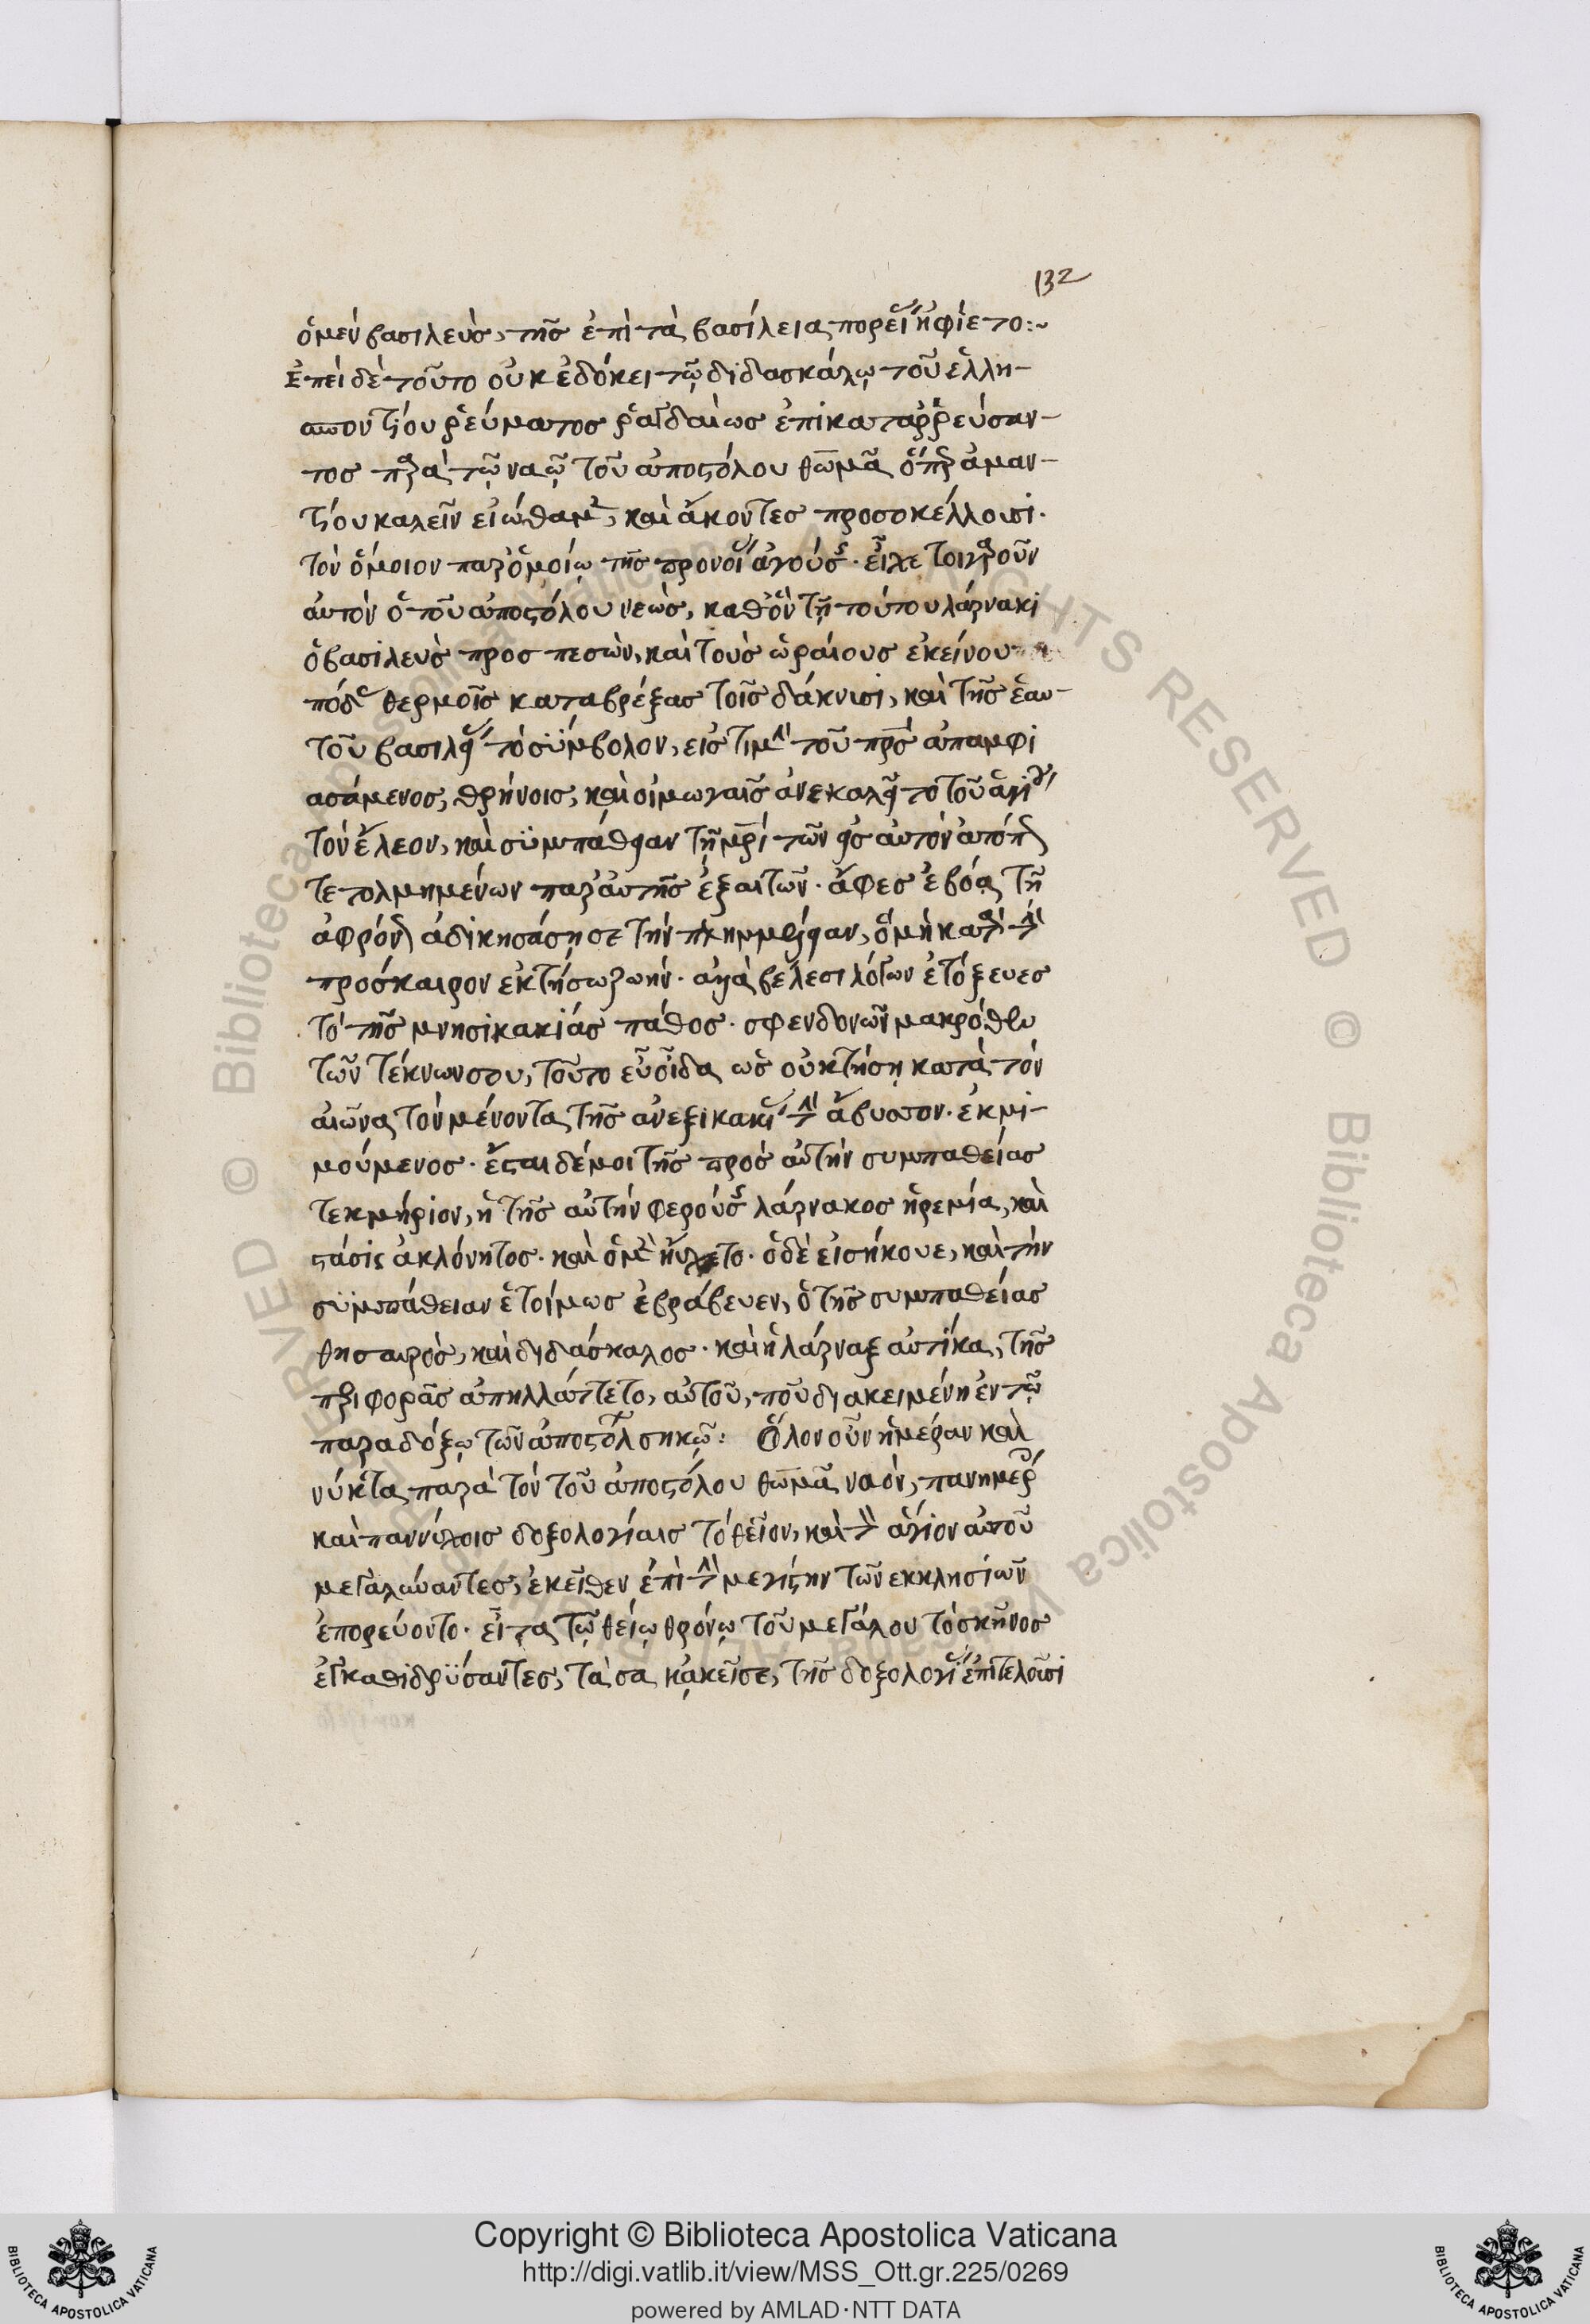 132
ὁ μὲν βασιλεὺς, τῆς ἐπὶ τὰ βασίλεια πορεί ἠφίετο:~
Ἐπεὶ δὲ τοῦτο οὐκ ἐδόκει τῷ διδασκάλῳ τοῦ ἑλλη-
σποντίου ῥεύματος ῥαγδαίως ἐπικαταρρεύσαν-
τος πρὰ τῷ ναῷ τοῦ ἀποστόλου θωμᾶ ὅπρ ἀμαν-
τίου καλεῖν εἰώθαμ, καὶ ἄκοντες προσοκέλλουσι.
τὸν ὅμοιον παρ ὁμοίῳ τῆς προνοί ἀγούσ. εἶχε τοιγροῦν
αὐτὸν ὁ τοῦ ἀποστόλου νεὼς, καθ ὃν τῇ τούτου λάρνακι
ὁ βασιλεὺς προσπεσὼν, καὶ τοὺς ὡραίους ἐκείνου
πόδ θερμοῖς καταβρέξας τοῖς δάκνυσι, καὶ τῆς ἑαυ-
τοῦ βασιλεί τὸ σύμβολον, εἰς τιμὴν τοῦ πρς ἀπαμφι
ασάμενος, θρήνοις, καὶ οἰμωγαῖς ἀνεκαλεῖτο τοῦ ἁγί
τὸν ἔλεον, καὶ συμπάθειαν τῇ μρὶ τῶν εἰς αὐτὸν ἀτόπ
τετολμημένων παρ αὐτῆς ἐξαιτῶν. ἄφες ἐβόα τῇ
ἀφρόν ἀδικησάσῃ σε τὴν πλημμέλειαν, ὁ μὴ κατὰ τὴν
πρόσκαιρον ἐκτήσω ζωήν. ἀλλὰ βέλεσι λόγων ἐτόξευες
τὸ τῆς μνησικακίας πάθος. σφενδονῶν μακρόθεν
τῶν τέκνων σου, τοῦτο εὖ οἶδα ὡς οὐ κτήσῃ κατὰ τὸν
αἰῶνα τὸν μένοντα, τῆς ἀνεξικακί τὴν ἄβυσσον. ἐκμι-
μούμενος. ἔσται δέ μοι τῆς πρὸς αὐτὴν συμπαθείας
τεκμήριον, ἡ τῆς αὐτὴν φερούσ λάρνακος ἠρεμία, καὶ
στάσις ἀκλόνητος. καὶ ὁ μὲν ηὔχετο. ὁ δὲ εἰσήκουε, καὶ τὴν
συμπάθειαν ἑτοίμως ἐβράβευεν, ὁ τῆς συμπαθείας
θησαυρὸς, καὶ διδάσκαλος. καὶ ἡ λάρναξ αὐτίκα, τῆς
πριφορᾶς ἀπηλλάττετο, αὐτοῦ, που διακειμένη ἐν τῷ
παραδόξῳ τῶν ἀποστόλ σηκῷ: Ὅλον οὖν ἡμέραν καὶ
νύκτα παρὰ τὸν τοῦ ἀποστόλου θωμᾶ ναὸν, πανημερ
καὶ παννύχοις δοξολογίαις τὸ θεῖον, καὶ τὸν ἅγιον αὐτοῦ
μεγαλύναντες, ἐκεῖθεν ἐπὶ τὴν μεγίστην τῶν ἐκκλησίων
ἐπορεύοντο. εἶτα τῷ θείῳ θρόνῳ τοῦ μεγάλου τὸ σκῆνος
ἐγκαθιδρύσαντες, τὰ σα κἀκεῖσε, τῆς δοξολογί ἐπιτελοῦσι
Copyright © Biblioteca Apostolica Vaticana
http://digi.vatlib.it/view/MSS_Ott.gr.225/0269
powered by AMLAD·NTT DATA